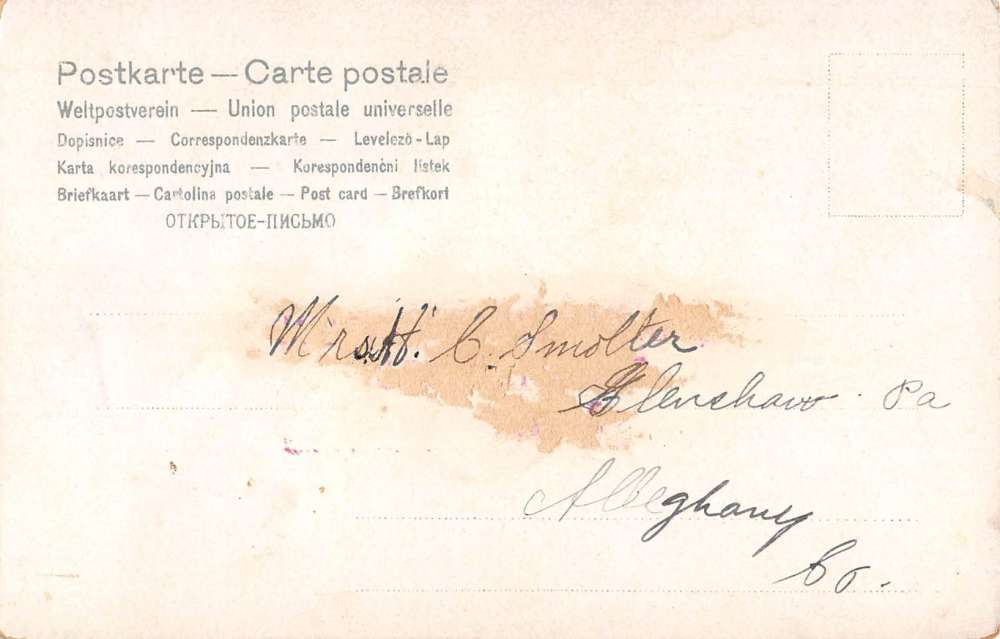 Postkarte — Carte postale
Weltpostverein — Union postale universelle
Dopisnice — Correspondenzkarte — Levelező-Lap
Karta korespondencyjna — Korespondenčni listek
Briefkaart — Cartolina postale — Post card — Brefkort
ОТКРЫТОЕ-ПИСЬМО
Mrs. H. C. Smolter
Glenshaw Pa
Alleghany
Co.